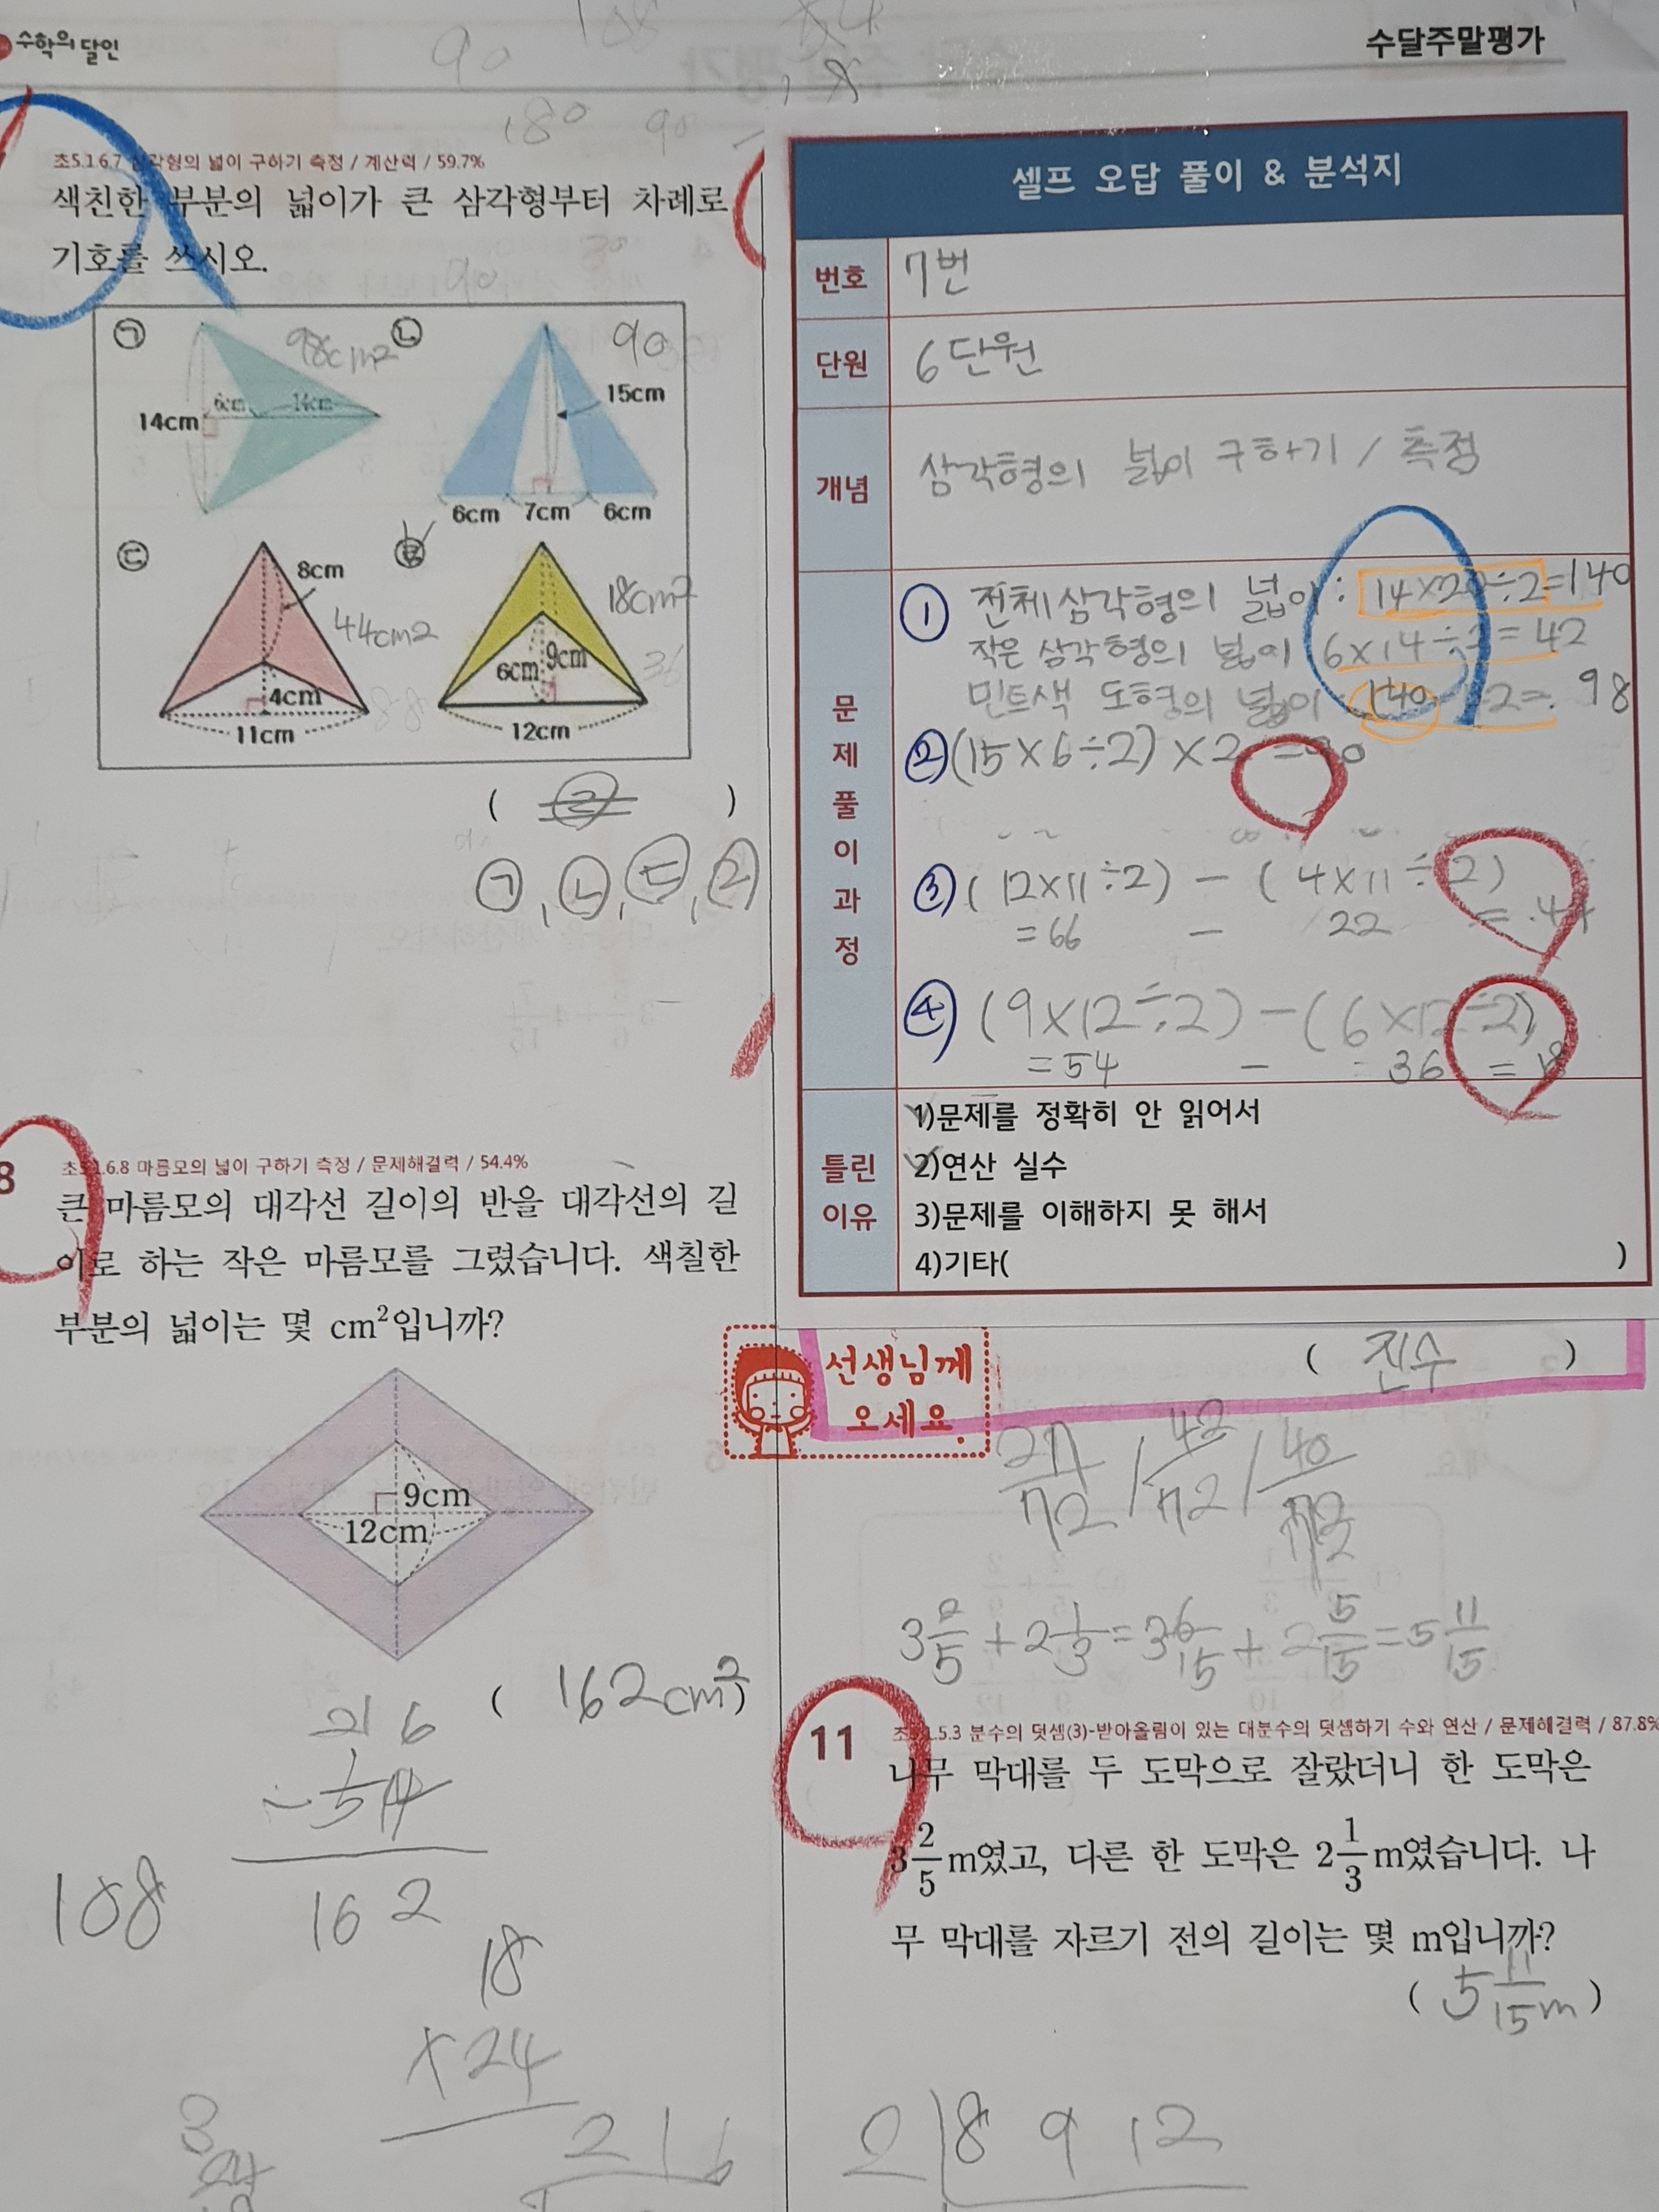 수학의 달인
수달주말평가
90
180 90
초5.1.6.7 삼각형의 넓이 구하기 측정 / 계산력 / 59.7%
색칠한 부분의 넓이가 큰 삼각형부터 차례로
기호를 쓰시오.
㉠ 98cm2
14cm 6cm 14cm
㉡ 90
15cm
6cm 7cm 6cm
㉢
8cm
44cm2
4cm
11cm
㉣
18cm2
6cm 9cm
36
12cm
( )
㉠, ㉡, ㉢, ㉣
8
초5.1.6.8 마름모의 넓이 구하기 측정 / 문제해결력 / 54.4%
큰 마름모의 대각선 길이의 반을 대각선의 길
이로 하는 작은 마름모를 그렸습니다. 색칠한
부분의 넓이는 몇 cm²입니까?
9cm
12cm
( 162cm²)
216
- 54
162
108
18
×24
216
셀프 오답 풀이 & 분석지
번호 7번
단원 6단원
개념 삼각형의 넓이 구하기 / 측정
문제풀이과정
① 전체 삼각형의 넓이: 14×20÷2=140
작은 삼각형의 넓이 6×14÷2=42
민트색 도형의 넓이: 140-42= 98
② (15×6÷2)×2=90
③ (12×11÷2) - (4×11÷2)
=66 - 22 = 44
④ (9×12÷2) - (6×12÷2)
=54 - 36 = 18
틀린이유
1)문제를 정확히 안 읽어서
2)연산 실수
3)문제를 이해하지 못 해서
4)기타( )
선생님께
오세요.
( 진수 )
27/72 / 42/72 / 40/72
3 2/5 + 2 1/3 = 3 6/15 + 2 5/15 = 5 11/15
11
초5.1.5.3 분수의 덧셈(3)-받아올림이 있는 대분수의 덧셈하기 수와 연산 / 문제해결력 / 87.8%
나무 막대를 두 도막으로 잘랐더니 한 도막은
3 2/5 m였고, 다른 한 도막은 2 1/3 m였습니다. 나
무 막대를 자르기 전의 길이는 몇 m입니까?
( 5 11/15 m )
2 8 9 12